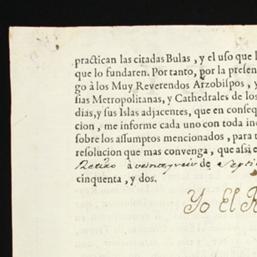 practican las citadas Bulas, y el uso que l
que lo fundaren. Por tanto, por la presen
go à los Muy Reverendos Arzobispos, y
sias Metropolitanas, y Cathedrales de los
dias, y sus Islas adjacentes, que en conseq
cion, me informe cada uno con toda ind
sobre los assumptos mencionados, para t
resolucion que mas convenga, que assi e
Retiro à veinte y seis de Septi
cinquenta, y dos.
Yo El R